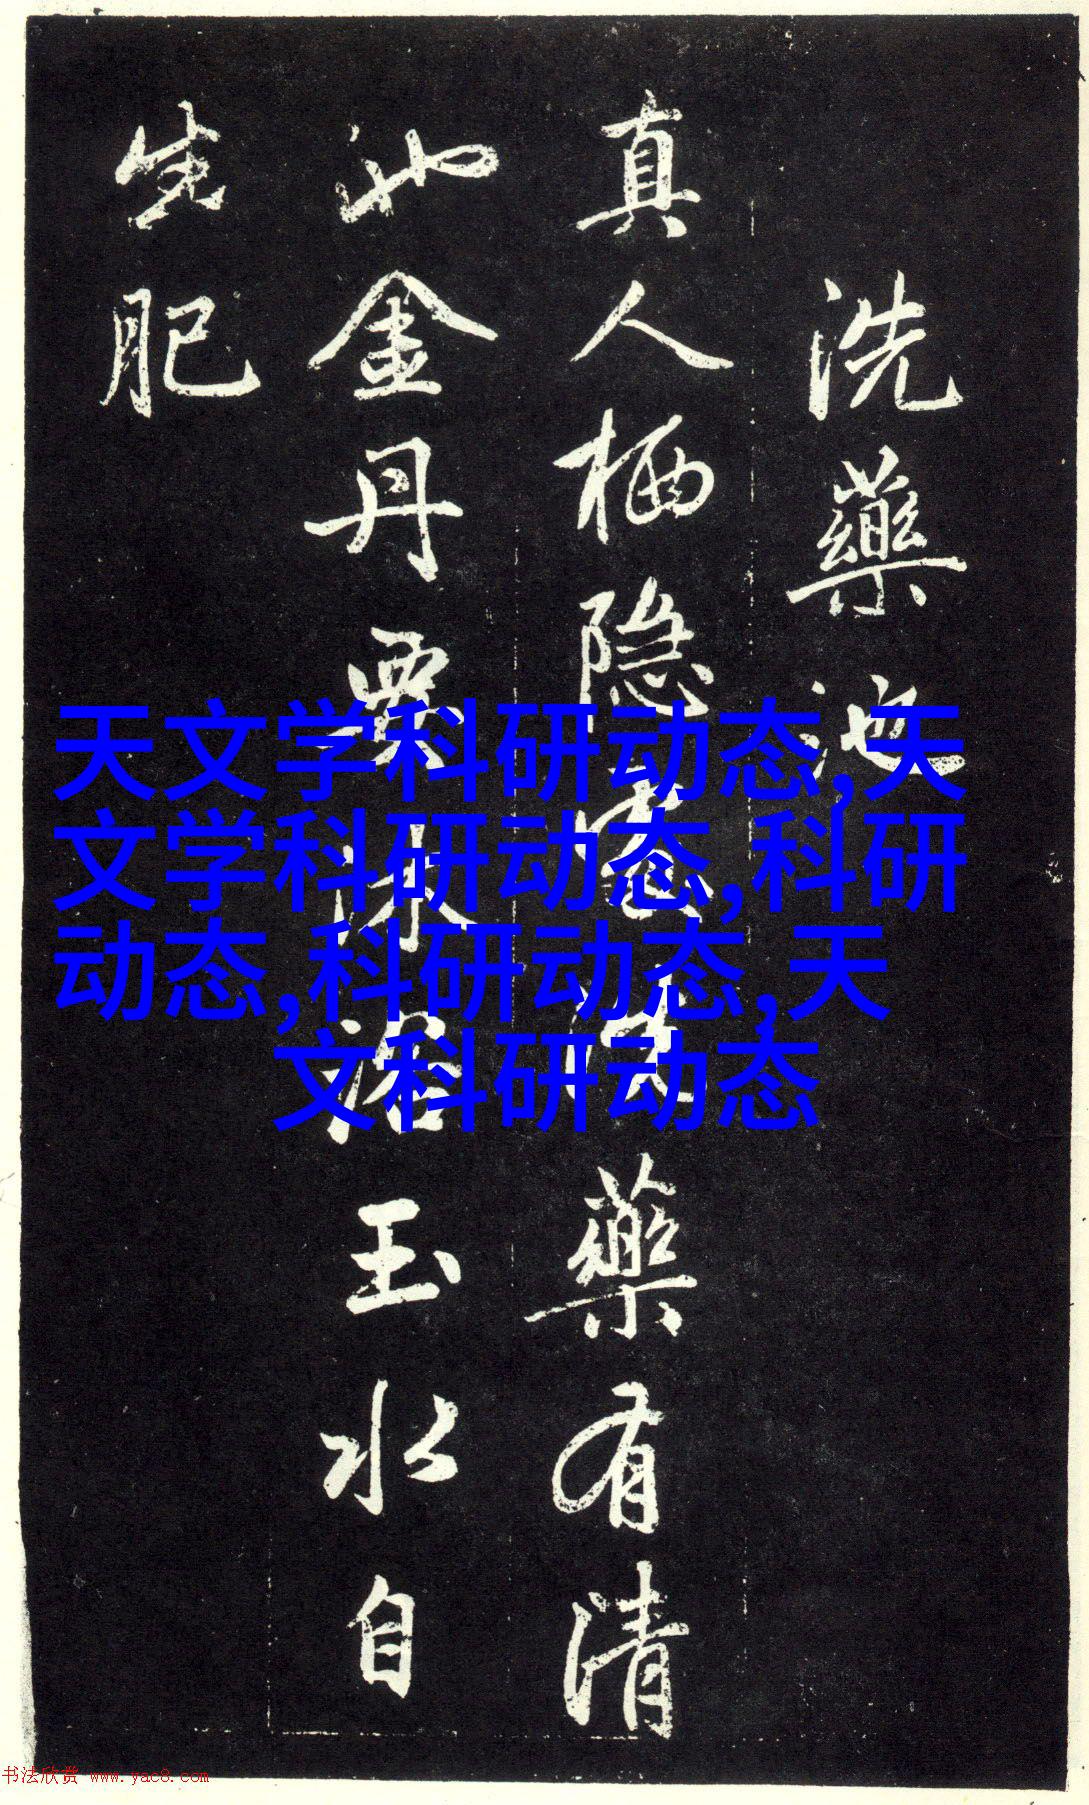 洗藥池
真人栖隐處洗藥有清
池金丹要沐浴玉水自
生肥
天文学科研动态,天
文学科研动态,科研
动态,科研动态,天
文科研动态
书法欣赏 www.yac8.com